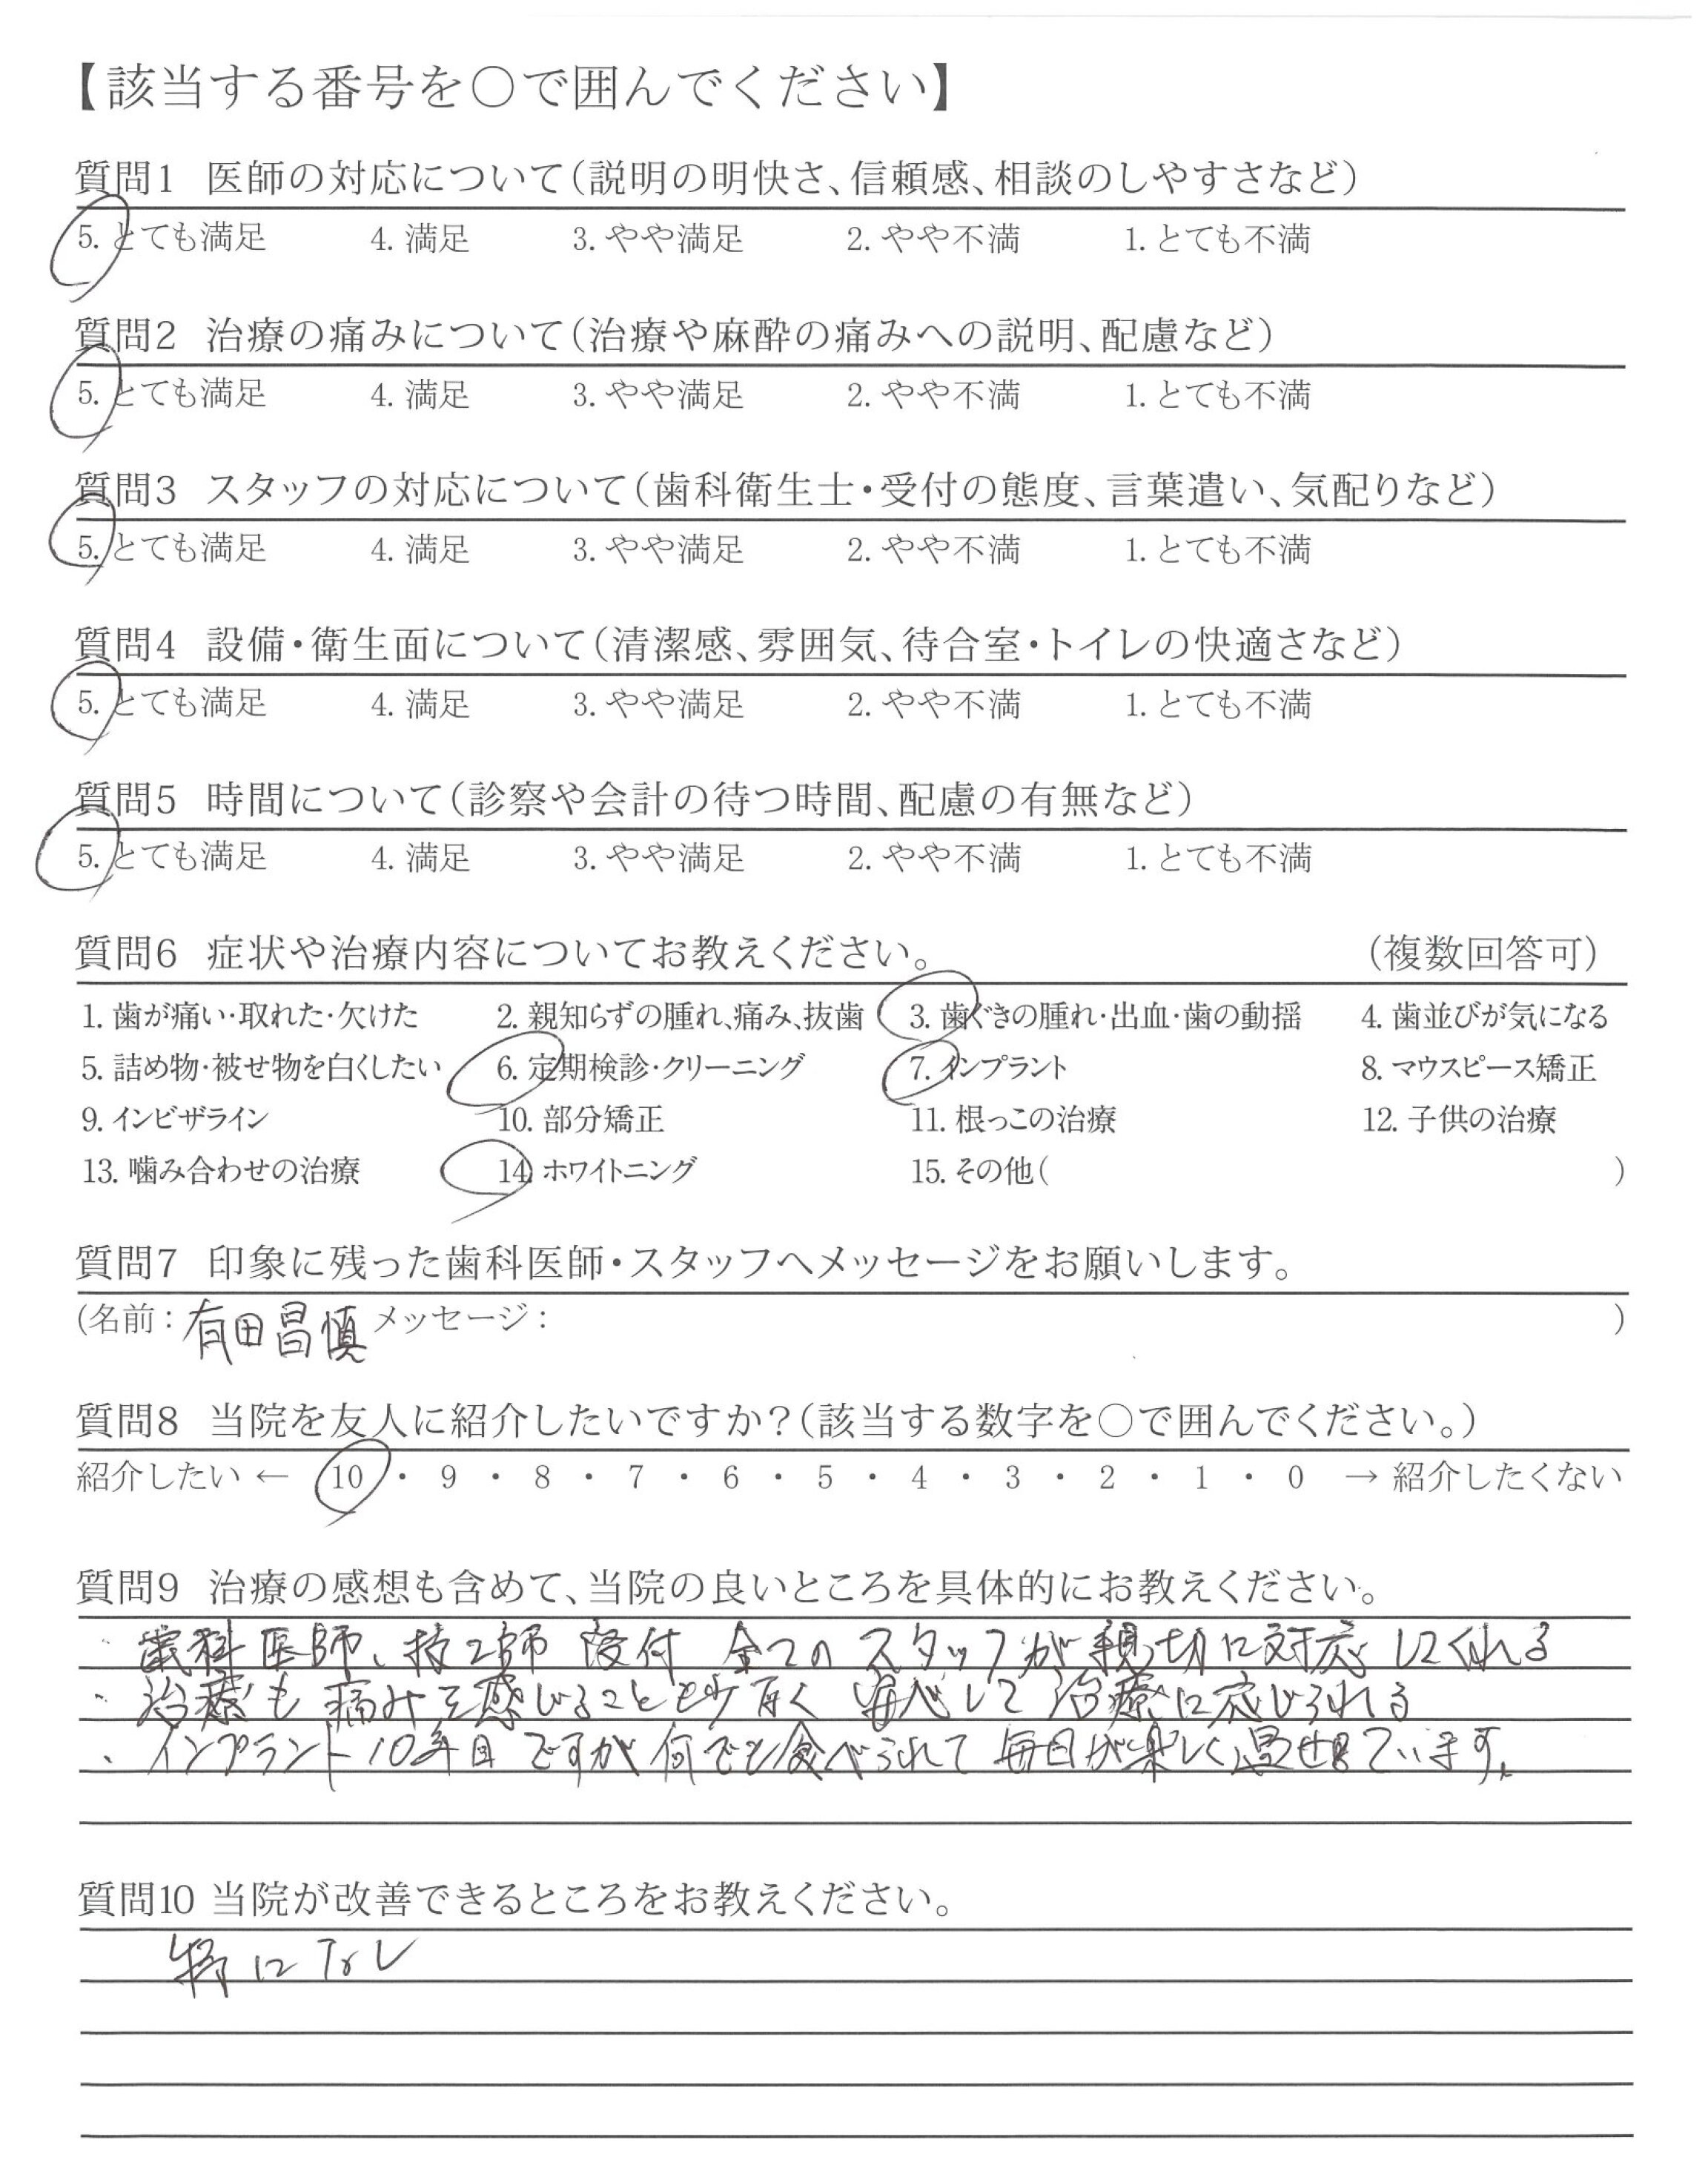 【該当する番号を○で囲んでください】
質問1 医師の対応について(説明の明快さ、信頼感、相談のしやすさなど)
5. とても満足 4. 満足 3. やや満足 2. やや不満 1. とても不満
質問2 治療の痛みについて(治療や麻酔の痛みへの説明、配慮など)
5. とても満足 4. 満足 3. やや満足 2. やや不満 1. とても不満
質問3 スタッフの対応について(歯科衛生士・受付の態度、言葉遣い、気配りなど)
5. とても満足 4. 満足 3. やや満足 2. やや不満 1. とても不満
質問4 設備・衛生面について(清潔感、雰囲気、待合室・トイレの快適さなど)
5. とても満足 4. 満足 3. やや満足 2. やや不満 1. とても不満
質問5 時間について(診察や会計の待つ時間、配慮の有無など)
5. とても満足 4. 満足 3. やや満足 2. やや不満 1. とても不満
質問6 症状や治療内容についてお教えください。 (複数回答可)
1. 歯が痛い・取れた・欠けた 2. 親知らずの腫れ、痛み、抜歯 3. 歯ぐきの腫れ・出血・歯の動揺 4. 歯並びが気になる
5. 詰め物・被せ物を白くしたい 6. 定期検診・クリーニング 7. インプラント 8. マウスピース矯正
9. インビザライン 10. 部分矯正 11. 根っこの治療 12. 子供の治療
13. 噛み合わせの治療 14. ホワイトニング 15. その他( )
質問7 印象に残った歯科医師・スタッフへメッセージをお願いします。
(名前: 有田昌慎 メッセージ: )
質問8 当院を友人に紹介したいですか?(該当する数字を○で囲んでください。)
紹介したい ← 10 ・ 9 ・ 8 ・ 7 ・ 6 ・ 5 ・ 4 ・ 3 ・ 2 ・ 1 ・ 0 → 紹介したくない
質問9 治療の感想も含めて、当院の良いところを具体的にお教えください。
・歯科医師、技工師 受付 全てのスタッフが親切に対応してくれる
・治療も痛みを感じることも少なく 安心して治療に応じられる
・インプラント10年目ですが何でも食べられて毎日が楽しく過せています。
質問10 当院が改善できるところをお教えください。
特になし